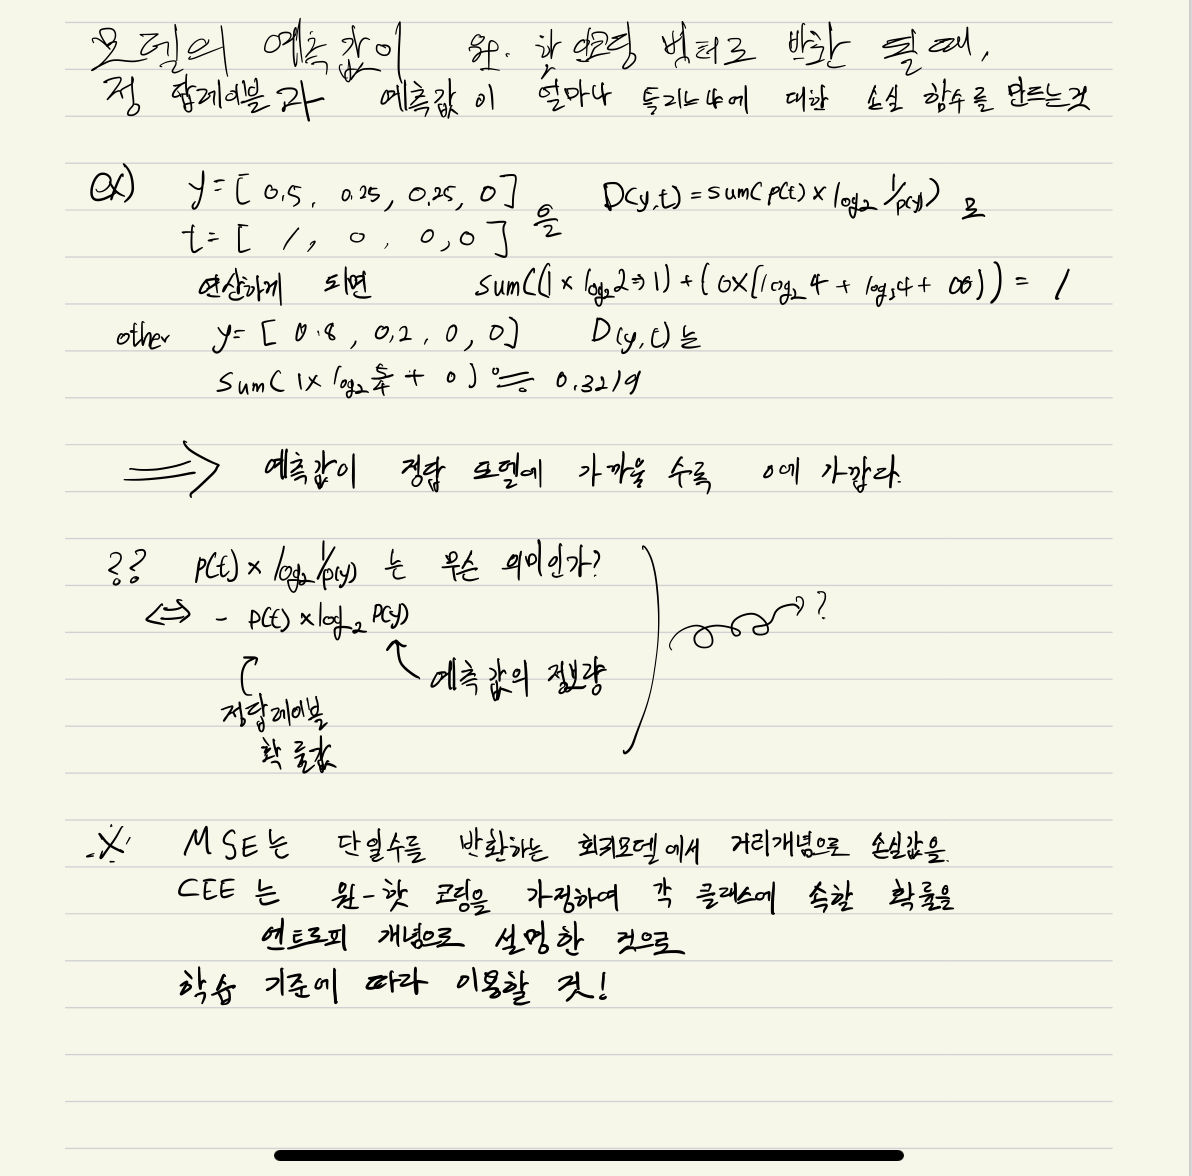 모델의 예측값이 원.핫 인코딩 벡터로 반환 될 때,
정 답레이블과 예측값이 얼마나 틀리느냐에 대한 손실 함수를 만드는것
ex) y=[ 0.5, 0.25, 0.25, 0] 을 D(y,t) = sum(p(t) × log₂ 1/p(y)) 로
t= [ 1, 0, 0,0 ]
연산하게 되면 sum((1 × log₂2⇒1) + (0×(log₂4 + log₂4 + ∞)) = 1
other y= [ 0.8, 0.2, 0, 0] D(y,t)는
sum( 1× log₂ 5/4 + 0 ) ≒ 0.3219
⇒ 예측값이 정답 모델에 가까울 수록 0에 가깝다.
?? p(t) × log₂ 1/p(y) 는 무슨 의미인가?
⇔ - p(t) × log₂ p(y) ?
예측값의 정보량
정답레이블
확률값
※ MSE는 단일수를 반환하는 회귀모델에서 거리개념으로 손실값을
CEE는 원-핫 코딩을 가정하여 각 클래스에 속할 확률을
엔트로피 개념으로 설명한 것으로
학습 기준에 따라 이용할 것!